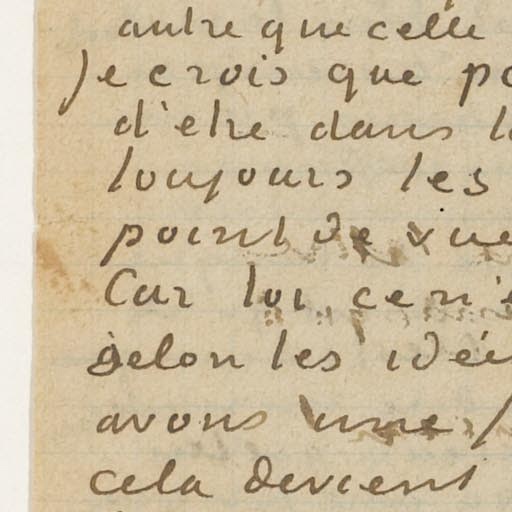 autre que celle
Je crois que po
d'etre dans l
toujours les
point de vue
Car loi ce n'e
selon les idée
avons une
cela devient